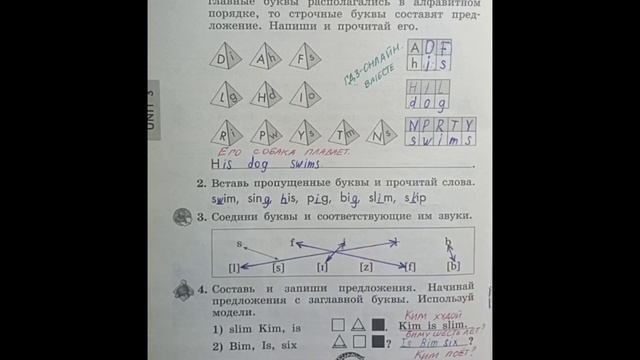 главные буквы располагались в алфавитном
порядке, то строчные буквы составят пред-
ложение. Напиши и прочитай его.
D i A h F s
ГДЗ-ОНЛАЙН.
ВМЕСТЕ
A D F
h i s
L g H d I o
H I L
d o g
UNIT 3
R i P w Y s T m N s
N P R T Y
s w i m s
ЕГО СОБАКА ПЛАВАЕТ.
His dog swims.
2. Вставь пропущенные буквы и прочитай слова.
swim, sing, his, pig, big, slim, skip
3. Соедини буквы и соответствующие им звуки.
s f i l b
[l] [s] [ɪ] [z] [f] [b]
4. Составь и запиши предложения. Начинай
предложения с заглавной буквы. Используй
модели.
КИМ ХУДОЙ
1) slim Kim, is 1. Kim is slim.
БИМУ ШЕСТЬ ЛЕТ?
2) Bim, Is, six ? Is Bim six ?
КИМ ПОЁТ?